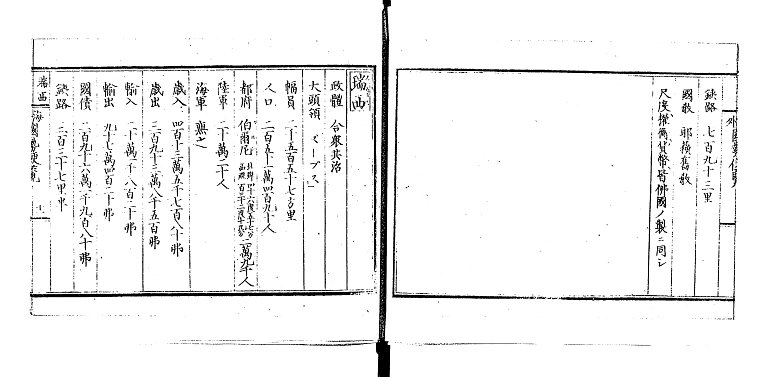 鉄路 七百九十三里
國教 耶穌舊教
尺度權衡貨幣皆佛國ノ製ニ同シ
瑞西
政體 合衆共治
大頭領
幅員 二千五百五十七方里
人口 二百五十一萬四百九十人
都府 伯爾尼 二萬九千人
陸軍 二十萬二千人
海軍 無之
歳入 四百十二萬五千七百八十弗
歳出 三百九十二萬八千五百弗
輸入 二十萬二千八百二十弗
輸出 九十七萬四百二十弗
國債 二百九十六萬二千九百八十弗
鉄路 三百三十七里半
瑞西